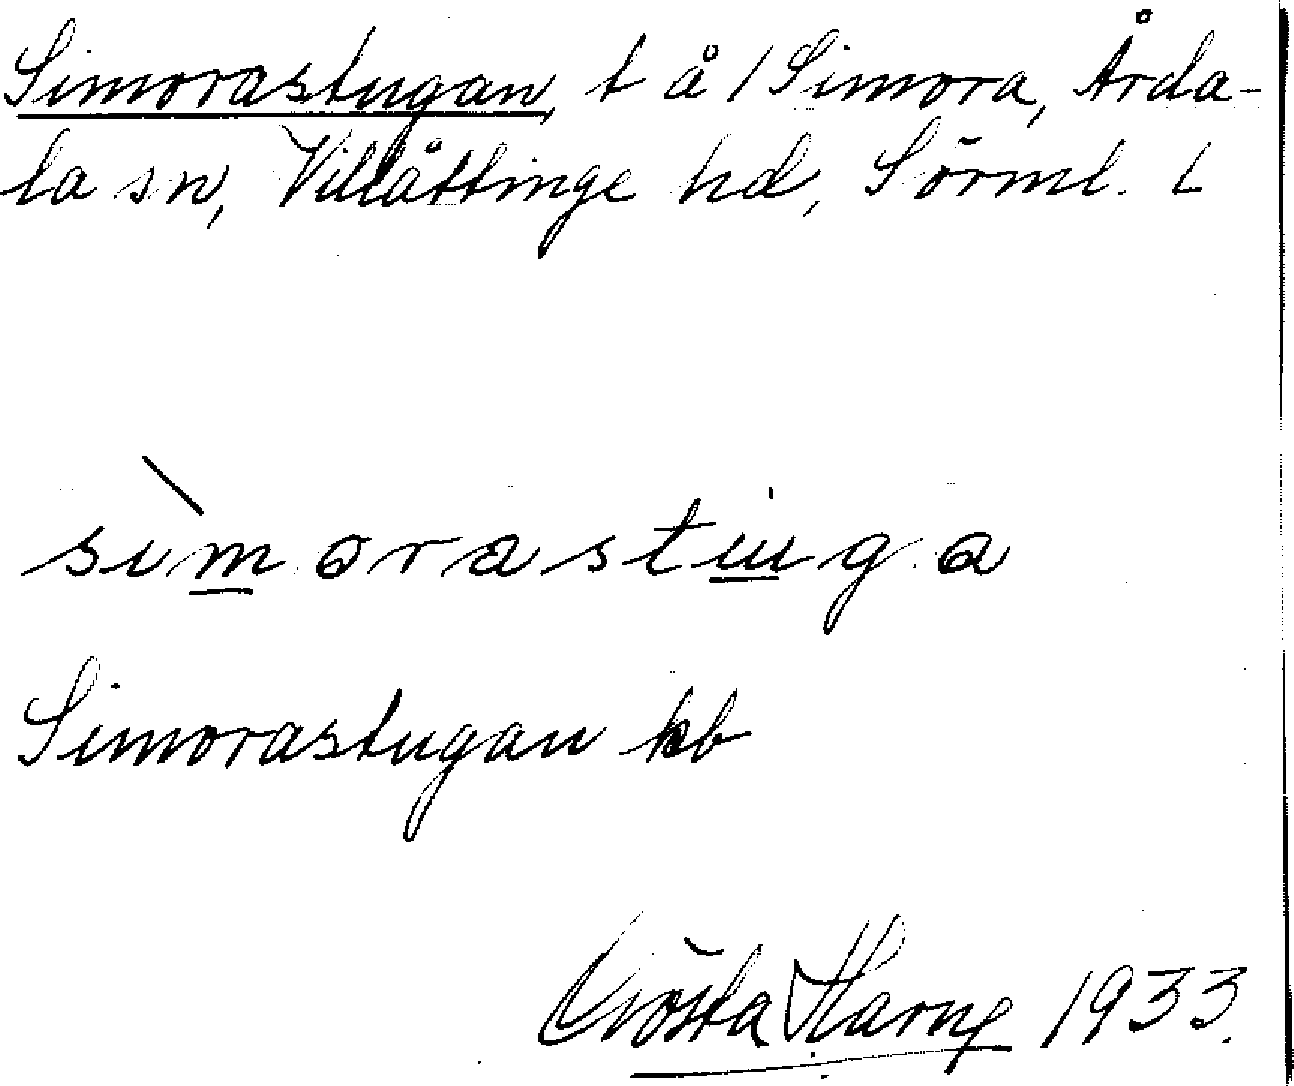 Simorastugan, t å /Simora, Årda-
la sn, Villåttinge hd, Sörml. L
sìmorastuga
Simorastugan kb
Gösta Harng 1933.